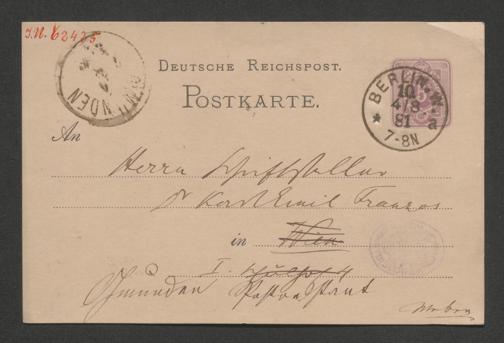 J.N. 62425
GMUNDEN
DEUTSCHE REICHSPOST.
POSTKARTE.
BERLIN. W.
10
4/8
81 a
7-8N
An
Herrn Schriftsteller
Dr Karl Emil Franzos
in Wien
I.
Gmunden Poste restant